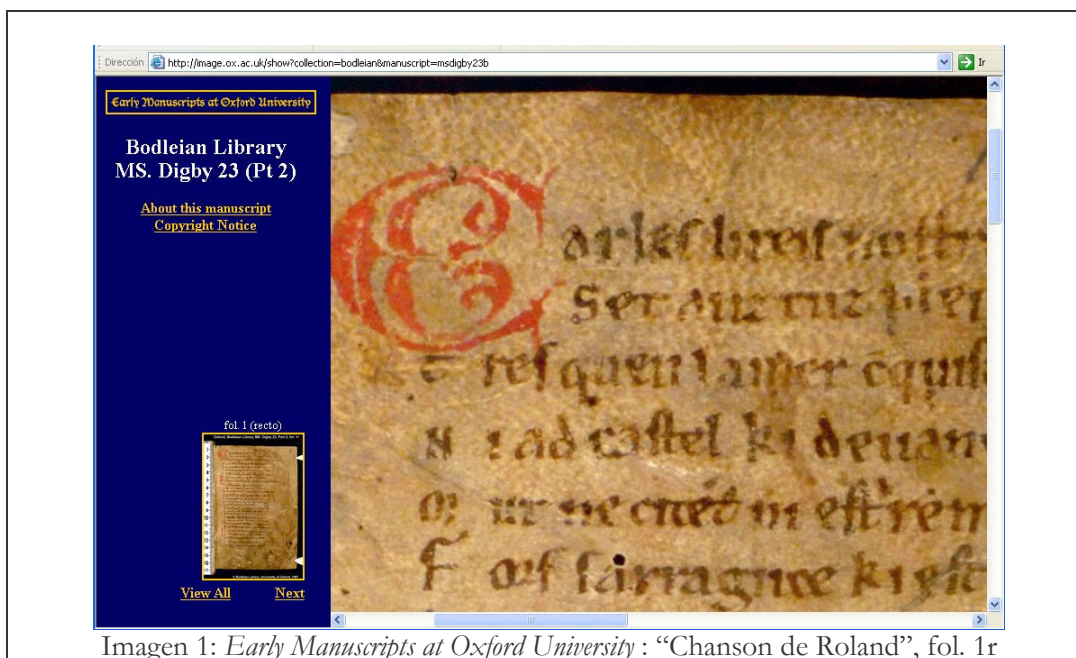 Dirección http://image.ox.ac.uk/show?collection=bodleian&manuscript=msdigby23b Ir
Early Manuscripts at Oxford University
Bodleian Library
MS. Digby 23 (Pt 2)
About this manuscript
Copyright Notice
fol. 1 (recto)
View All Next
Carles li reis nostr
Set anz tuz plen
T resquen la mer cõquis
N i ad castel ki deuan
M ur ne citet ni est rem
F ors sarraguce ki est
Imagen 1: Early Manuscripts at Oxford University : “Chanson de Roland”, fol. 1r